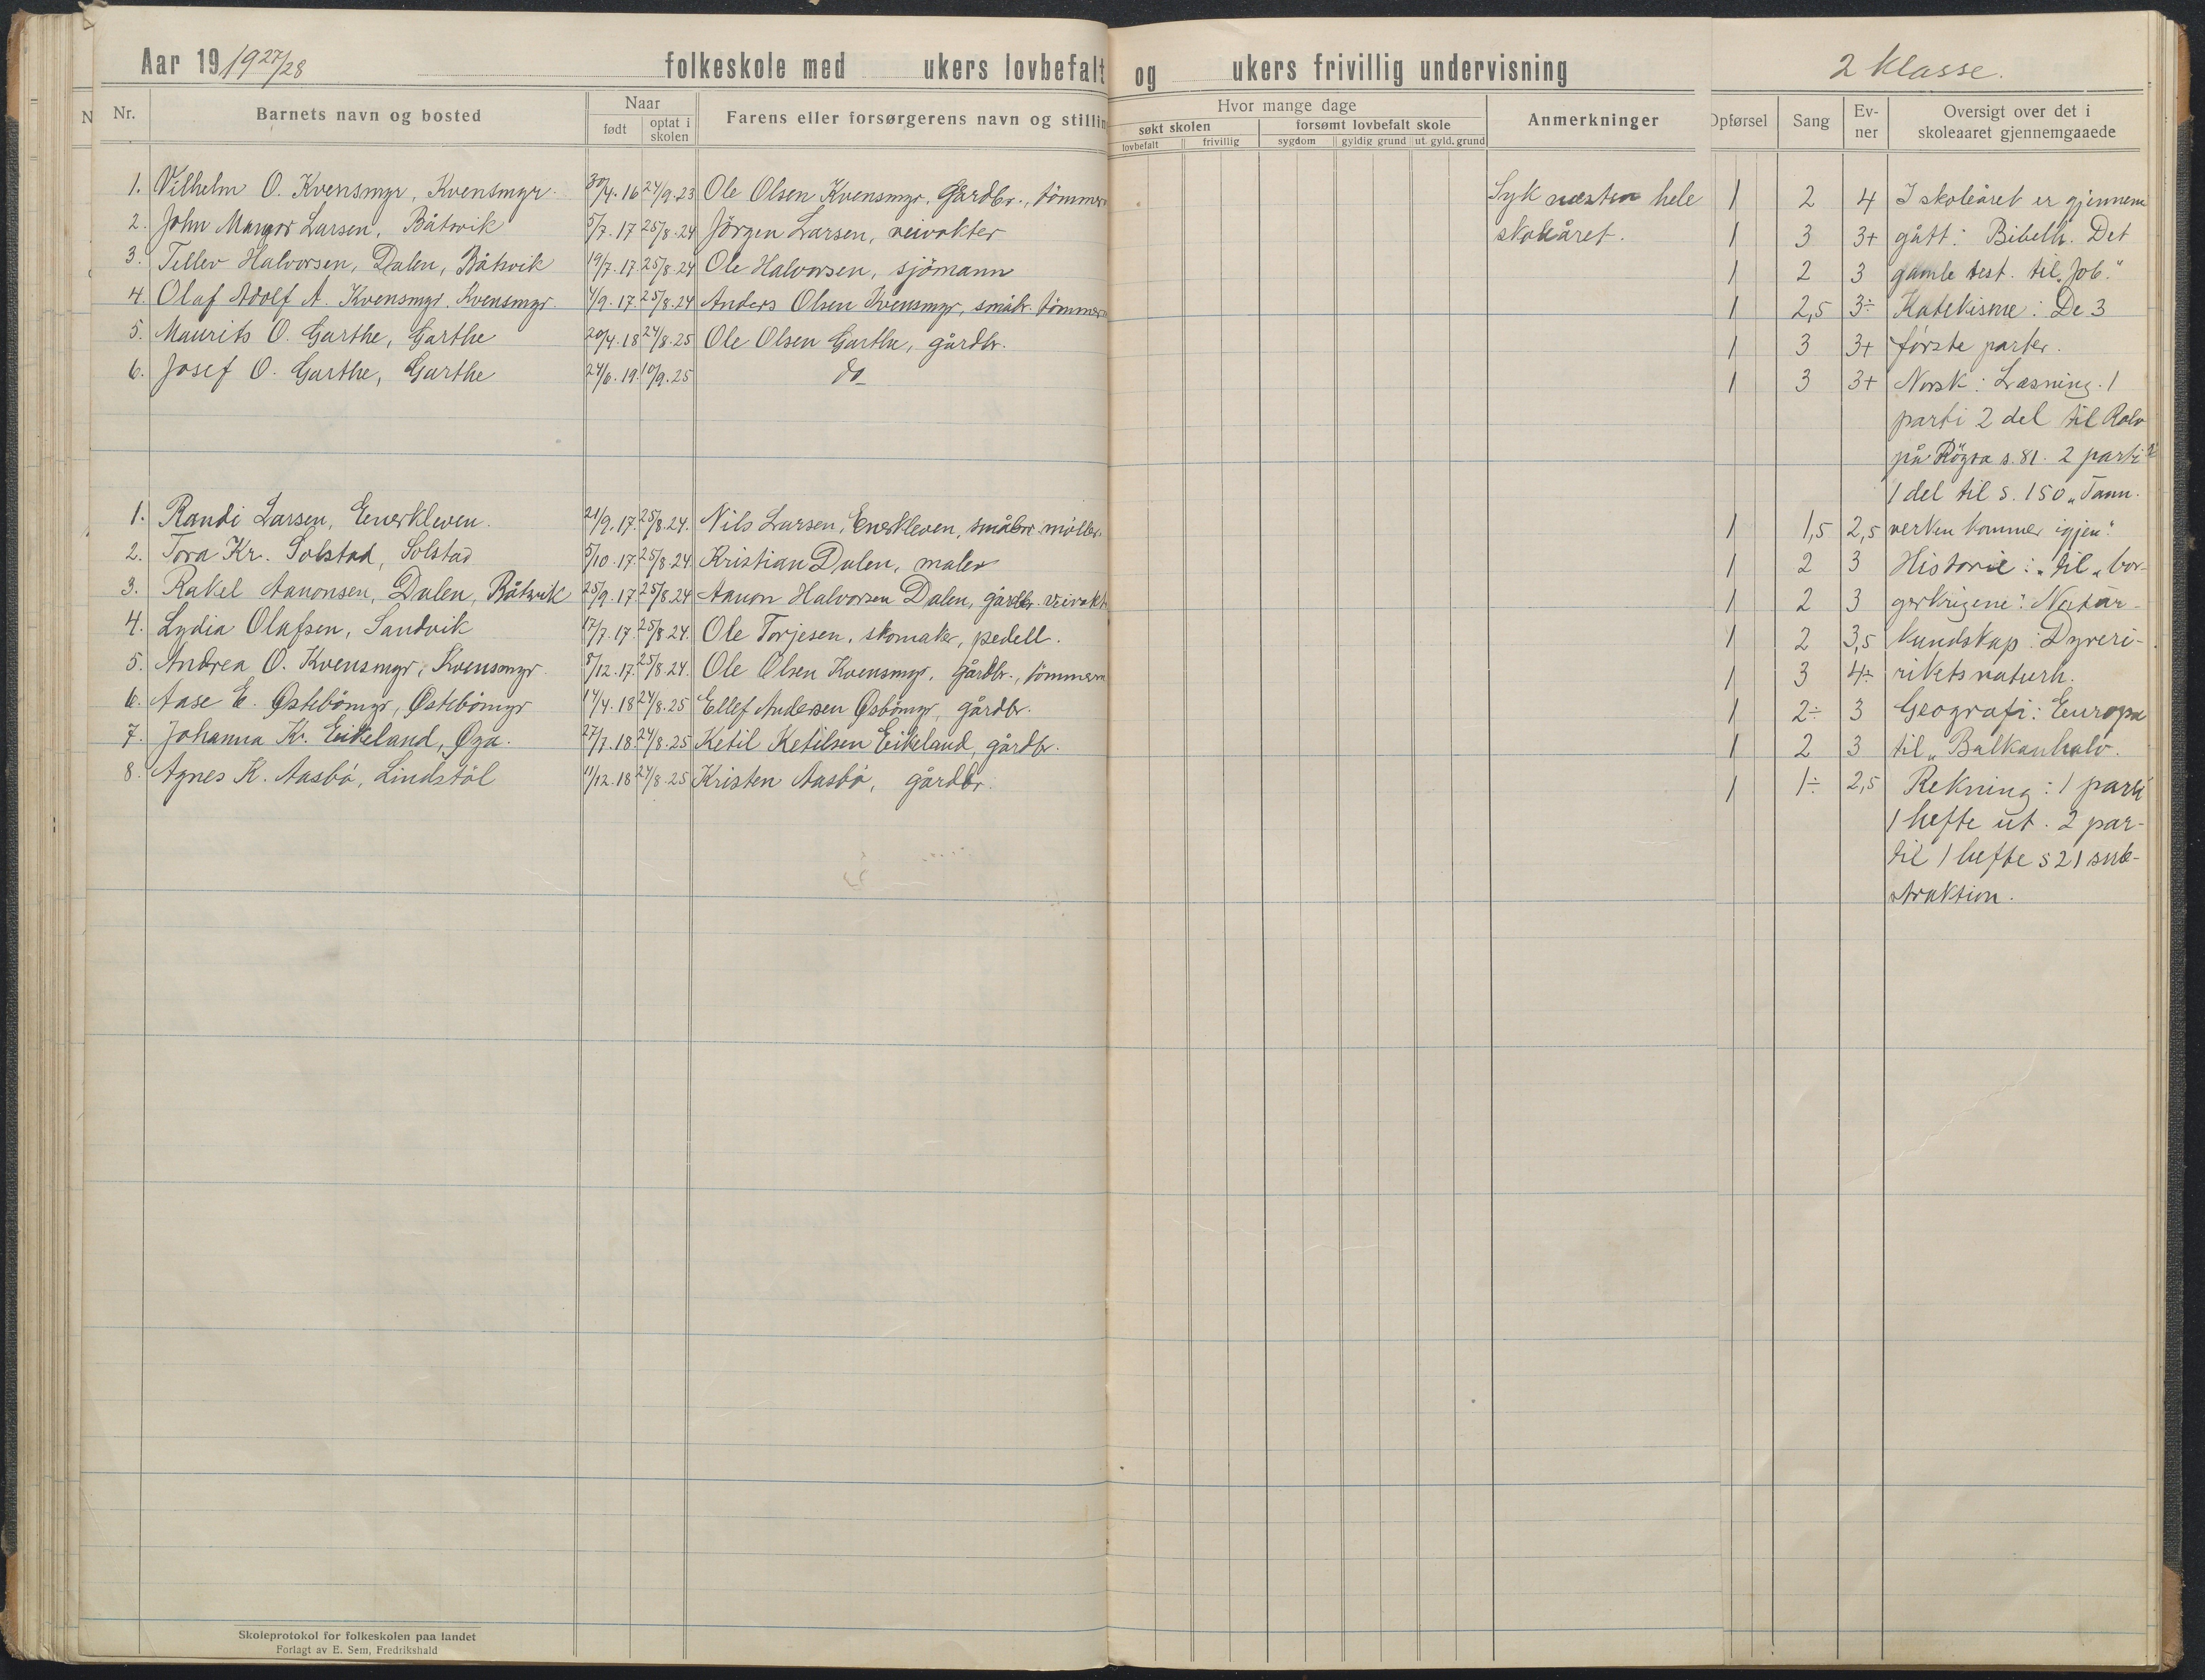 Aar 19 1927/28 folkeskole med ukers lovbefalt og ukers frivillig undervisning 2 klasse.
Nr. Barnets navn og bosted Naar født optat i skolen Farens eller forsørgerens navn og stillin
Hvor mange dage søkt skolen lovbefalt frivillig forsømt lovbefalt skole sygdom gyldig grund ut. gyld. grund Anmerkninger
Opførsel Sang Ev-ner Oversigt over det i skoleaaret gjennemgaaede
1. Vilhelm O. Kvensmyr, Kvensmyr. 30/4.16 24/9.23 Ole Olsen Kvensmyr, Gårdbr., tömmerm Syk næsten hele 1 2 4 I skoleåret er gjennem
2. John Mangor Larsen, Båtsvik 5/7.17 25/8.24 Jörgen Larsen, veivokter skoleåret. 1 3 3+ gått: Bibelh. Det
3. Tellev Halvorsen, Dalen, Båtsvik 19/7.17 25/8.24 Ole Halvorsen, sjömann 1 2 3 gamle test. til "Job."
4. Olaf Adolf A. Kvensmyr, Kvensmyr. 4/9.17 25/8.24 Anders Olsen Kvensmyr, småbr. tömmerm 1 2,5 3÷ Katekisme: De 3
5. Maurits O. Garthe, Garthe 20/4.18 24/8.25 Ole Olsen Garthe, gårdbr. 1 3 3+ förste parter.
6. Josef O. Garthe, Garthe 24/6.19 10/9.25 do 1 3 3+ Norsk: Læsning. 1
parti 2 del til Rolv
på Rögra s. 81. 2 parti
1 del til s. 150 "Tann.
1. Randi Larsen, Enerkleven. 21/9.17. 25/8.24. Nils Larsen, Enerkleven, småbr. møller. 1 1,5 2,5 verken kommer igjen."
2. Tora Kr. Solstad, Solstad 5/10.17. 25/8.24. Kristian Dalen, maler 1 2 3 Historie: til "bor-
3. Rakel Aanonsen, Dalen, Båtsvik 25/9.17. 25/8.24 Aanon Halvorsen Dalen, gårdbr. veivokt 1 2 3 gerkrigene". Natur-
4. Lydia Olafsen, Sandvik 17/7.17. 25/8.24. Ole Torjesen, skomaker, pedell. 1 2 3,5 kundskap: Dyreri-
5. Andrea O. Kvensmyr, Kvensmyr 8/12.17. 25/8.24. Ole Olsen Kvensmyr, gårdbr., tömmerm 1 3 4÷ rikets naturh.
6. Aase E. Østebömyr, Østebömyr 14/4.18 24/8.25 Ellef Andersen Øsbömyr, gårdbr. 1 2÷ 3 Geografi: Europa
7. Johanna Kr. Eikeland, Øya. 27/7.18. 24/8.25 Ketil Ketilsen Eikeland, gårdbr. 1 2 3 til "Balkanhalv.
8. Agnes K. Aasbø, Lindstöl 11/12.18 24/8.25 Kristen Aasbø, gårdbr. 1 1÷ 2,5 Rekning: 1 parti
1 hefte ut. 2 par-
til 1 hefte s 21 sub-
straktion.
Skoleprotokol for folkeskolen paa landet
Forlagt av E. Sem, Fredrikshald